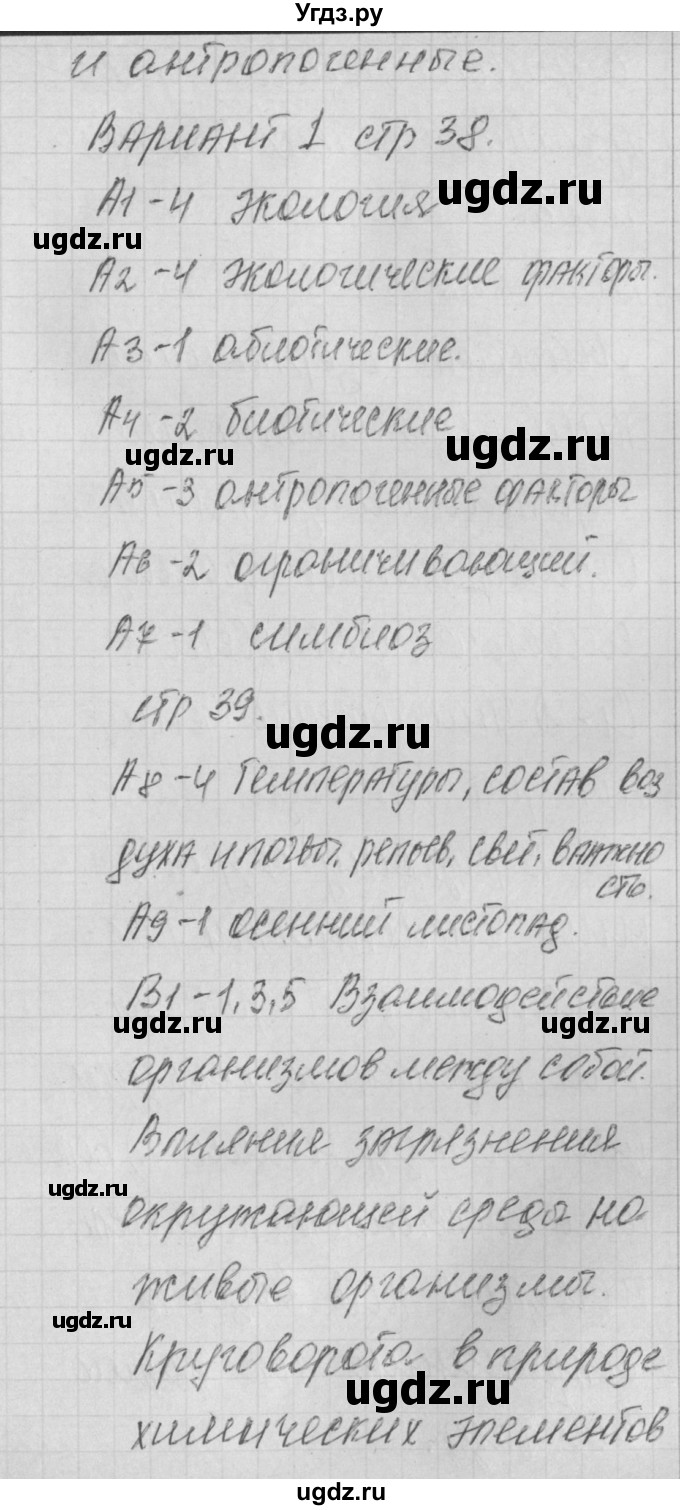 Угдз.ру
и антропогенные.
Вариант 1 стр 38.
А1-4 экология
ugdz.ru
ugdz.ru
А2-4 экологические факторы.
А3-1 абиотические.
А4-2 биотические
ugdz.ru
ugdz.ru
А5-3 антропогенные факторы
А6-2 ограничивающий.
А7-1 симбиоз
стр 39.
ugdz.ru
А8-4 Температуры, состав воз
духа и почвы, рельеф, свет, влажно
сть.
А9-1 осенний листопад.
В1-1,3,5 Взаимодействие
ugdz.ru
ugdz.ru
организмов между собой.
Влияния загрязнения
ugdz.ru
окружающей среды на
живые организмы.
ugdz.ru
Круговорота в природе
ugdz.ru
химических элементов
ugdz.ru